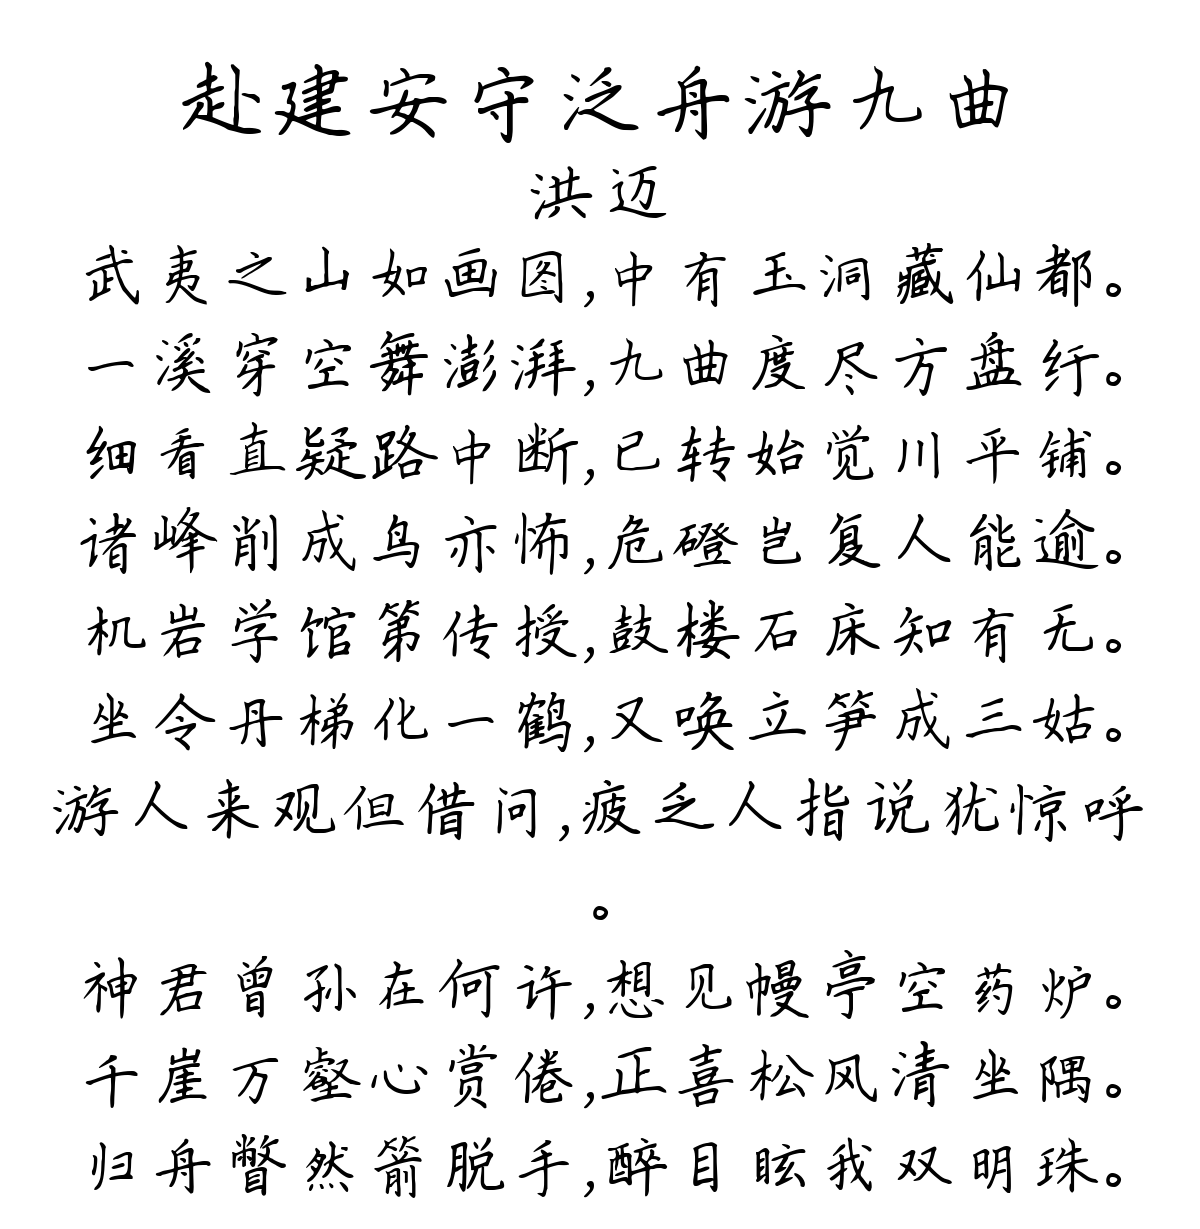 赴建安守泛舟游九曲
洪迈
武夷之山如画图,中有玉洞藏仙都。
一溪穿空舞澎湃,九曲度尽方盘纡。
细看直疑路中断,已转始觉川平铺。
诸峰削成鸟亦怖,危磴岂复人能逾。
机岩学馆第传授,鼓楼石床知有无。
坐令丹梯化一鹤,又唤立笋成三姑。
游人来观但借问,疲乏人指说犹惊呼
。
神君曾孙在何许,想见幔亭空药炉。
千崖万壑心赏倦,正喜松风清坐隅。
归舟瞥然箭脱手,醉目眩我双明珠。